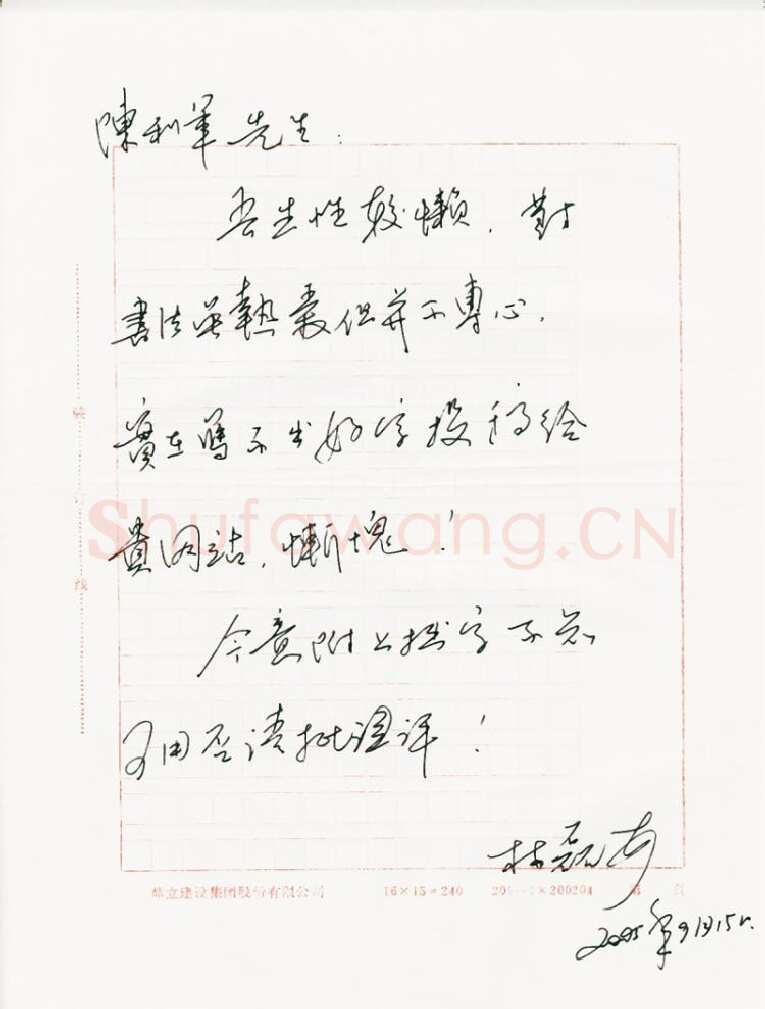 陳利軍先生:
吾生性較懶,對
書法雖熱衷但并不專心,
實在寫不出好字投稿給
貴网站,慚愧!
今意附上拙字不知
可用否请批評!
2005年9月15日.
裝
线
建设集团股份有限公司 16×15=240 ×200204 第 頁
Shufawang.CN